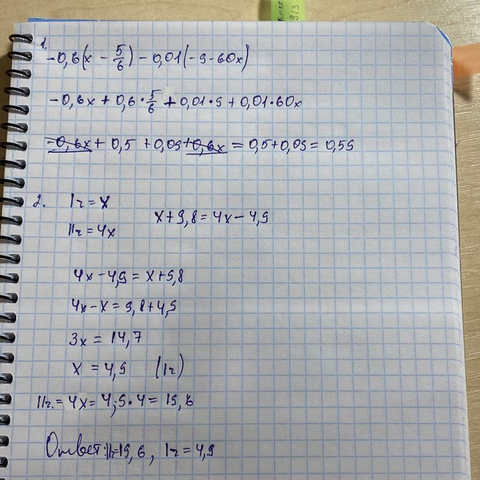 1.
-0,6(x - 5/6) - 0,01(-9-60x)
-0,6x + 0,6 · 5/6 + 0,01·9 + 0,01·60x
-0,6x + 0,5 + 0,09 + 0,6x = 0,5+0,09 = 0,59
2. Iг = x
IIг = 4x
x+9,8 = 4x - 4,9
4x - 4,9 = x + 9,8
4x - x = 9,8 + 4,9
3x = 14,7
x = 4,9 (Iг)
IIг. = 4x = 4,9·4 = 19,6
Ответ: II-19,6, Iг = 4,9